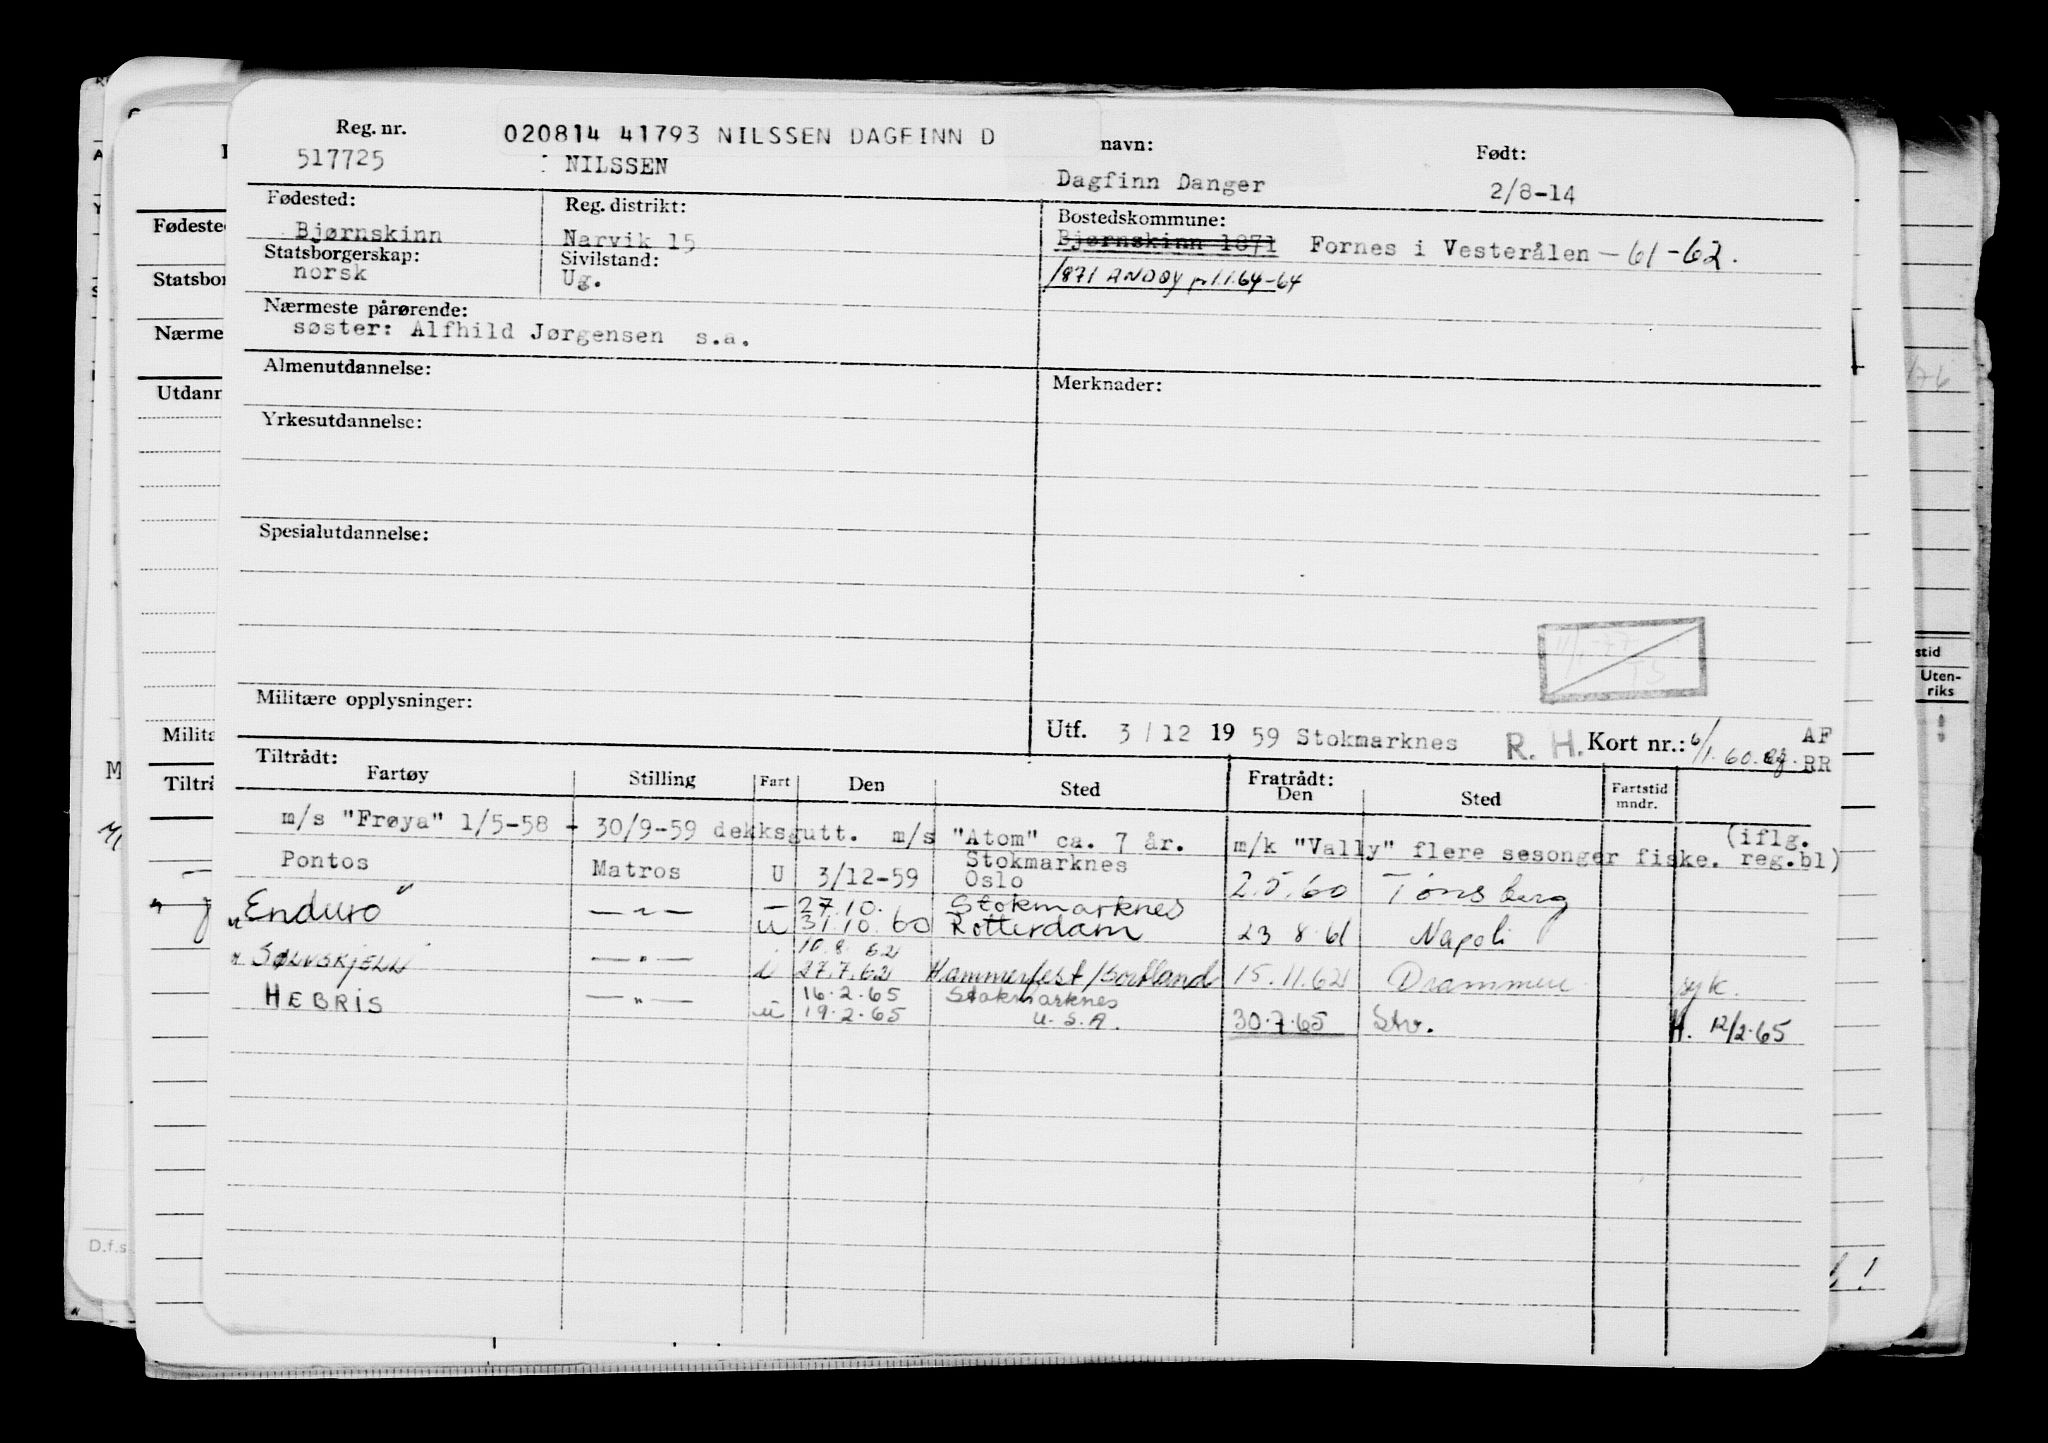 Reg. nr. 020814 41793 NILSSEN DAGFINN D navn: Født:
517725 : NILSSEN Dagfinn Danger 2/8-14
Fødested: Reg. distrikt: Bostedskommune:
Bjørnskinn Narvik 15 Bjørnskinn 1871 Fornes i Vesterålen - 61-62.
Statsborgerskap: Sivilstand:
norsk Ug. 1871 ANDØY pr 1.1.64-64
Nærmeste pårørende:
søster: Alfhild Jørgensen s.a.
Almenutdannelse: Merknader:
Yrkesutdannelse:
Spesialutdannelse:
Militære opplysninger:
Utf. 3/12 1959 Stokmarknes R. H. Kort nr.: 6/1.60. AF
RR
Tiltrådt: Fratrådt:
Fartøy Stilling Fart Den Sted Den Sted Fartstid mndr.
m/s "Frøya" 1/5-58 - 30/9-59 dekksgutt. m/s "Atom" ca. 7 år. m/k "Vally" flere sesonger fiske. (iflg. reg.bl)
Pontos Matros U 3/12-59 Stokmarknes Oslo 2.5.60 Tønsberg
"Enduro" — " — — 27.10. Stokmarknes
u 31.10.60 Rotterdam 23 8.61 Napoli
" SØLVSKJELL — " — 10.8.62
27.7.62 Hammerfest/Sortland 15.11.62 Drammen syk.
HEBRIS — " — 16.2.65 Stokmarknes
u 19.2.65 U.S.A. 30.7.65 Stv. H. 12/2.65
Fødeste
Statsbor
Nærme
Utdann
Milita
Tiltrå
D.f.s
stid
Uten-
riks